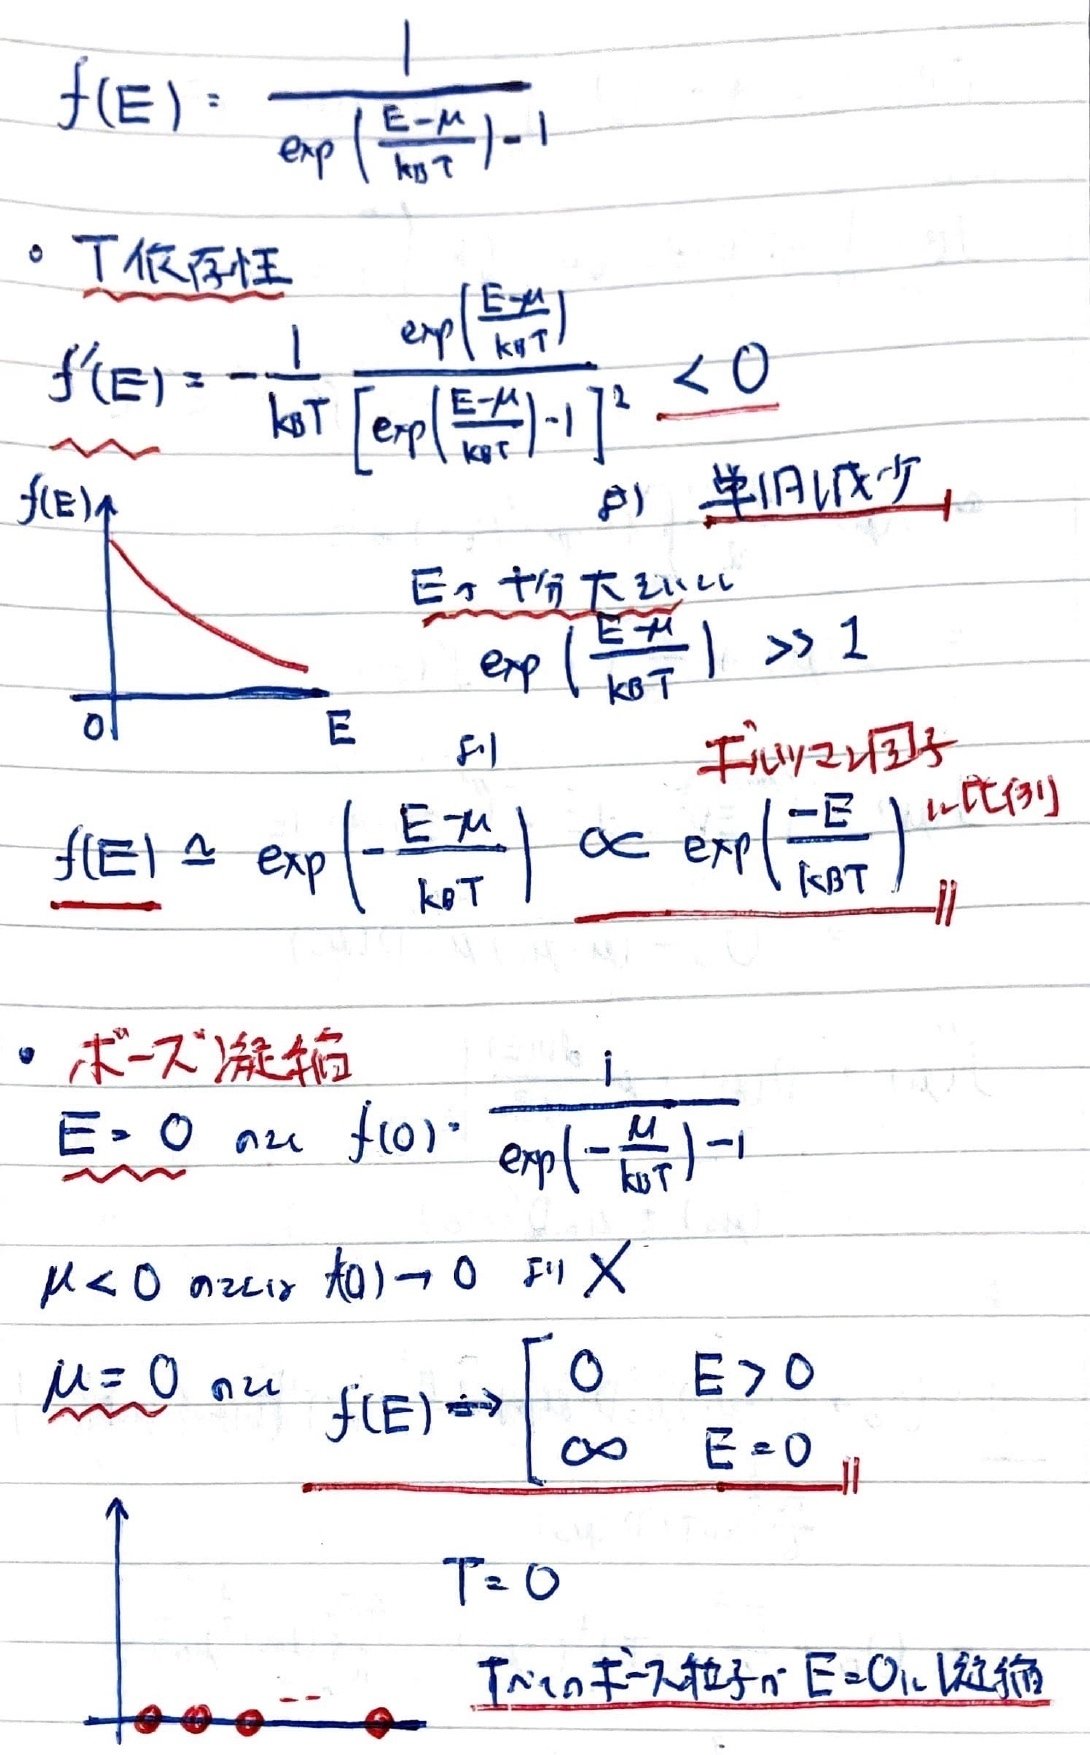 f(E) = 1 / (exp((E-μ)/(kBT)) - 1)
・T依存性
f'(E) = -1/(kBT) exp((E-μ)/(kBT)) / [exp((E-μ)/(kBT)) - 1]² < 0
より 単調減少
f(E)
Eが十分大きいとき
exp((E-μ)/(kBT)) >> 1
0 E
より
ボルツマン因子に比例
f(E) ≃ exp(-(E-μ)/(kBT)) ∝ exp(-E/(kBT))
・ボーズ凝縮
E=0 のとき f(0) = 1 / (exp(-μ/(kBT)) - 1)
μ<0 のときは f(0)→0 より ×
μ=0 のとき f(E) → [ 0 E>0
∞ E=0
T=0
すべてのボース粒子が E=0に凝縮